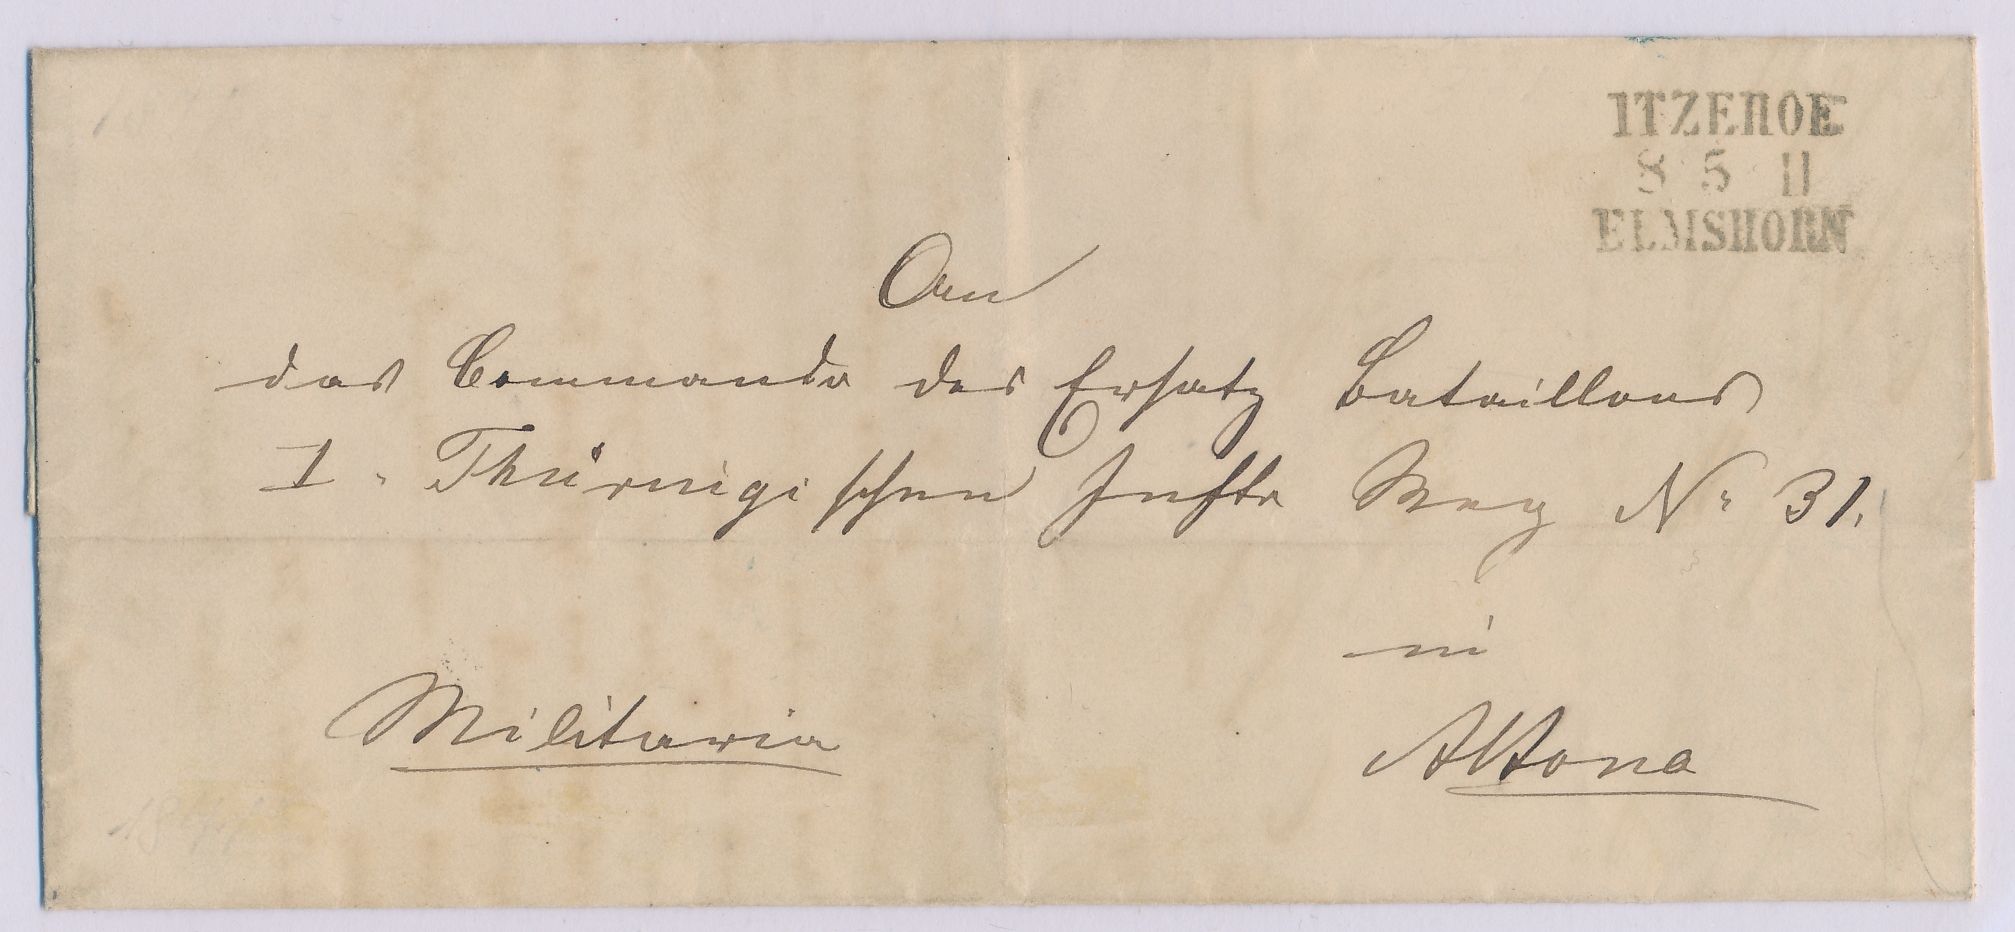 ITZEHOE
8 5 11
ELMSHORN
An
das Commando des Ersatz Bataillons
1. Thüringischen Inftr Reg Nr 31.
in
Altona
Militaria